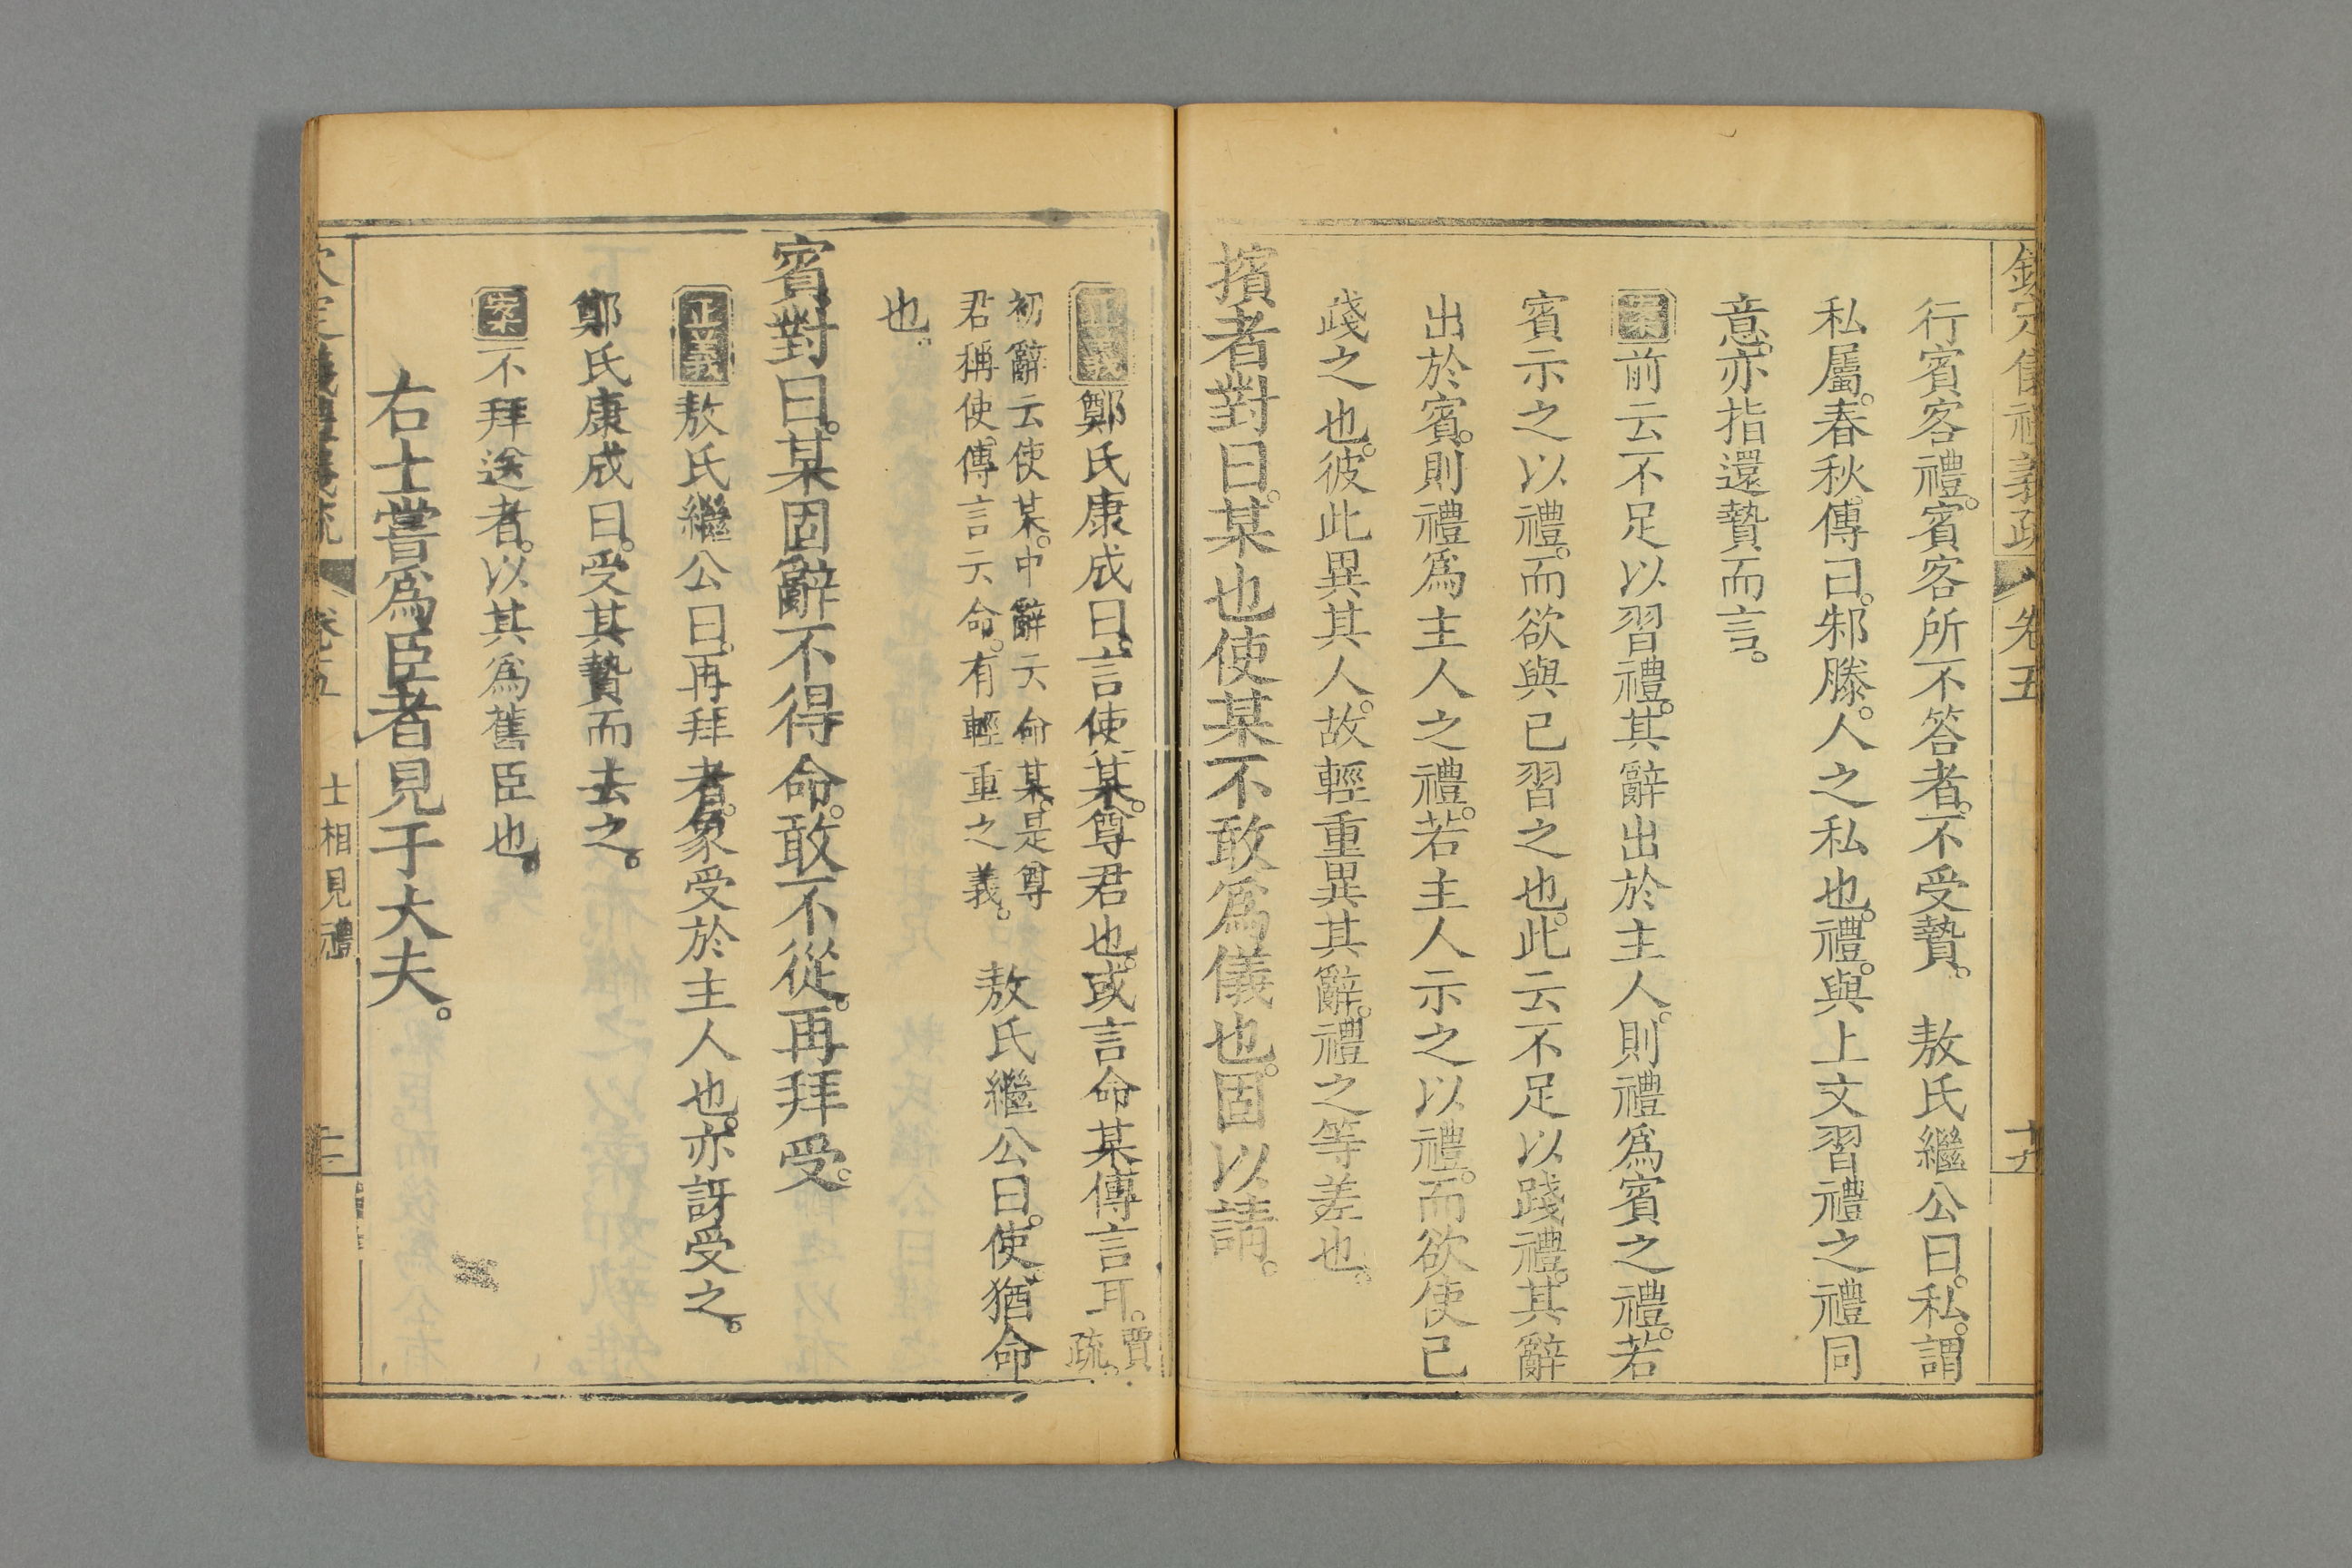 欽定儀禮義疏 卷五 十九
行賓客禮。賓客所不答者。不受贄。 敖氏繼公曰。私。謂
私屬。春秋傳曰。邾滕。人之私也。禮。與上文習禮之禮同
意。亦指還贄而言。
案前云不足以習禮。其辭出於主人。則禮爲賓之禮。若
賓示之以禮。而欲與已習之也。此云不足以踐禮。其辭
出於賓。則禮爲主人之禮。若主人示之以禮。而欲使己
踐之也。彼此異其人。故輕重異其辭。禮之等差也。
擯者對曰。某也使某不敢爲儀也。固以請。
正義鄭氏康成曰。言使某。尊君也。或言命某。傳言耳。賈疏。
初辭云使某。中辭云命某。是尊
君稱使。傳言云命。有輕重之義。
敖氏繼公曰。使。猶命
也。
賓對曰。某固辭不得命。敢不從。再拜受。
正義敖氏繼公曰。再拜者。象受於主人也。亦訝受之。
鄭氏康成曰。受其贄而去之。
案不拜送者。以其爲舊臣也。
右士嘗爲臣者見于大夫。
欽定儀禮義疏 卷五 士相見禮